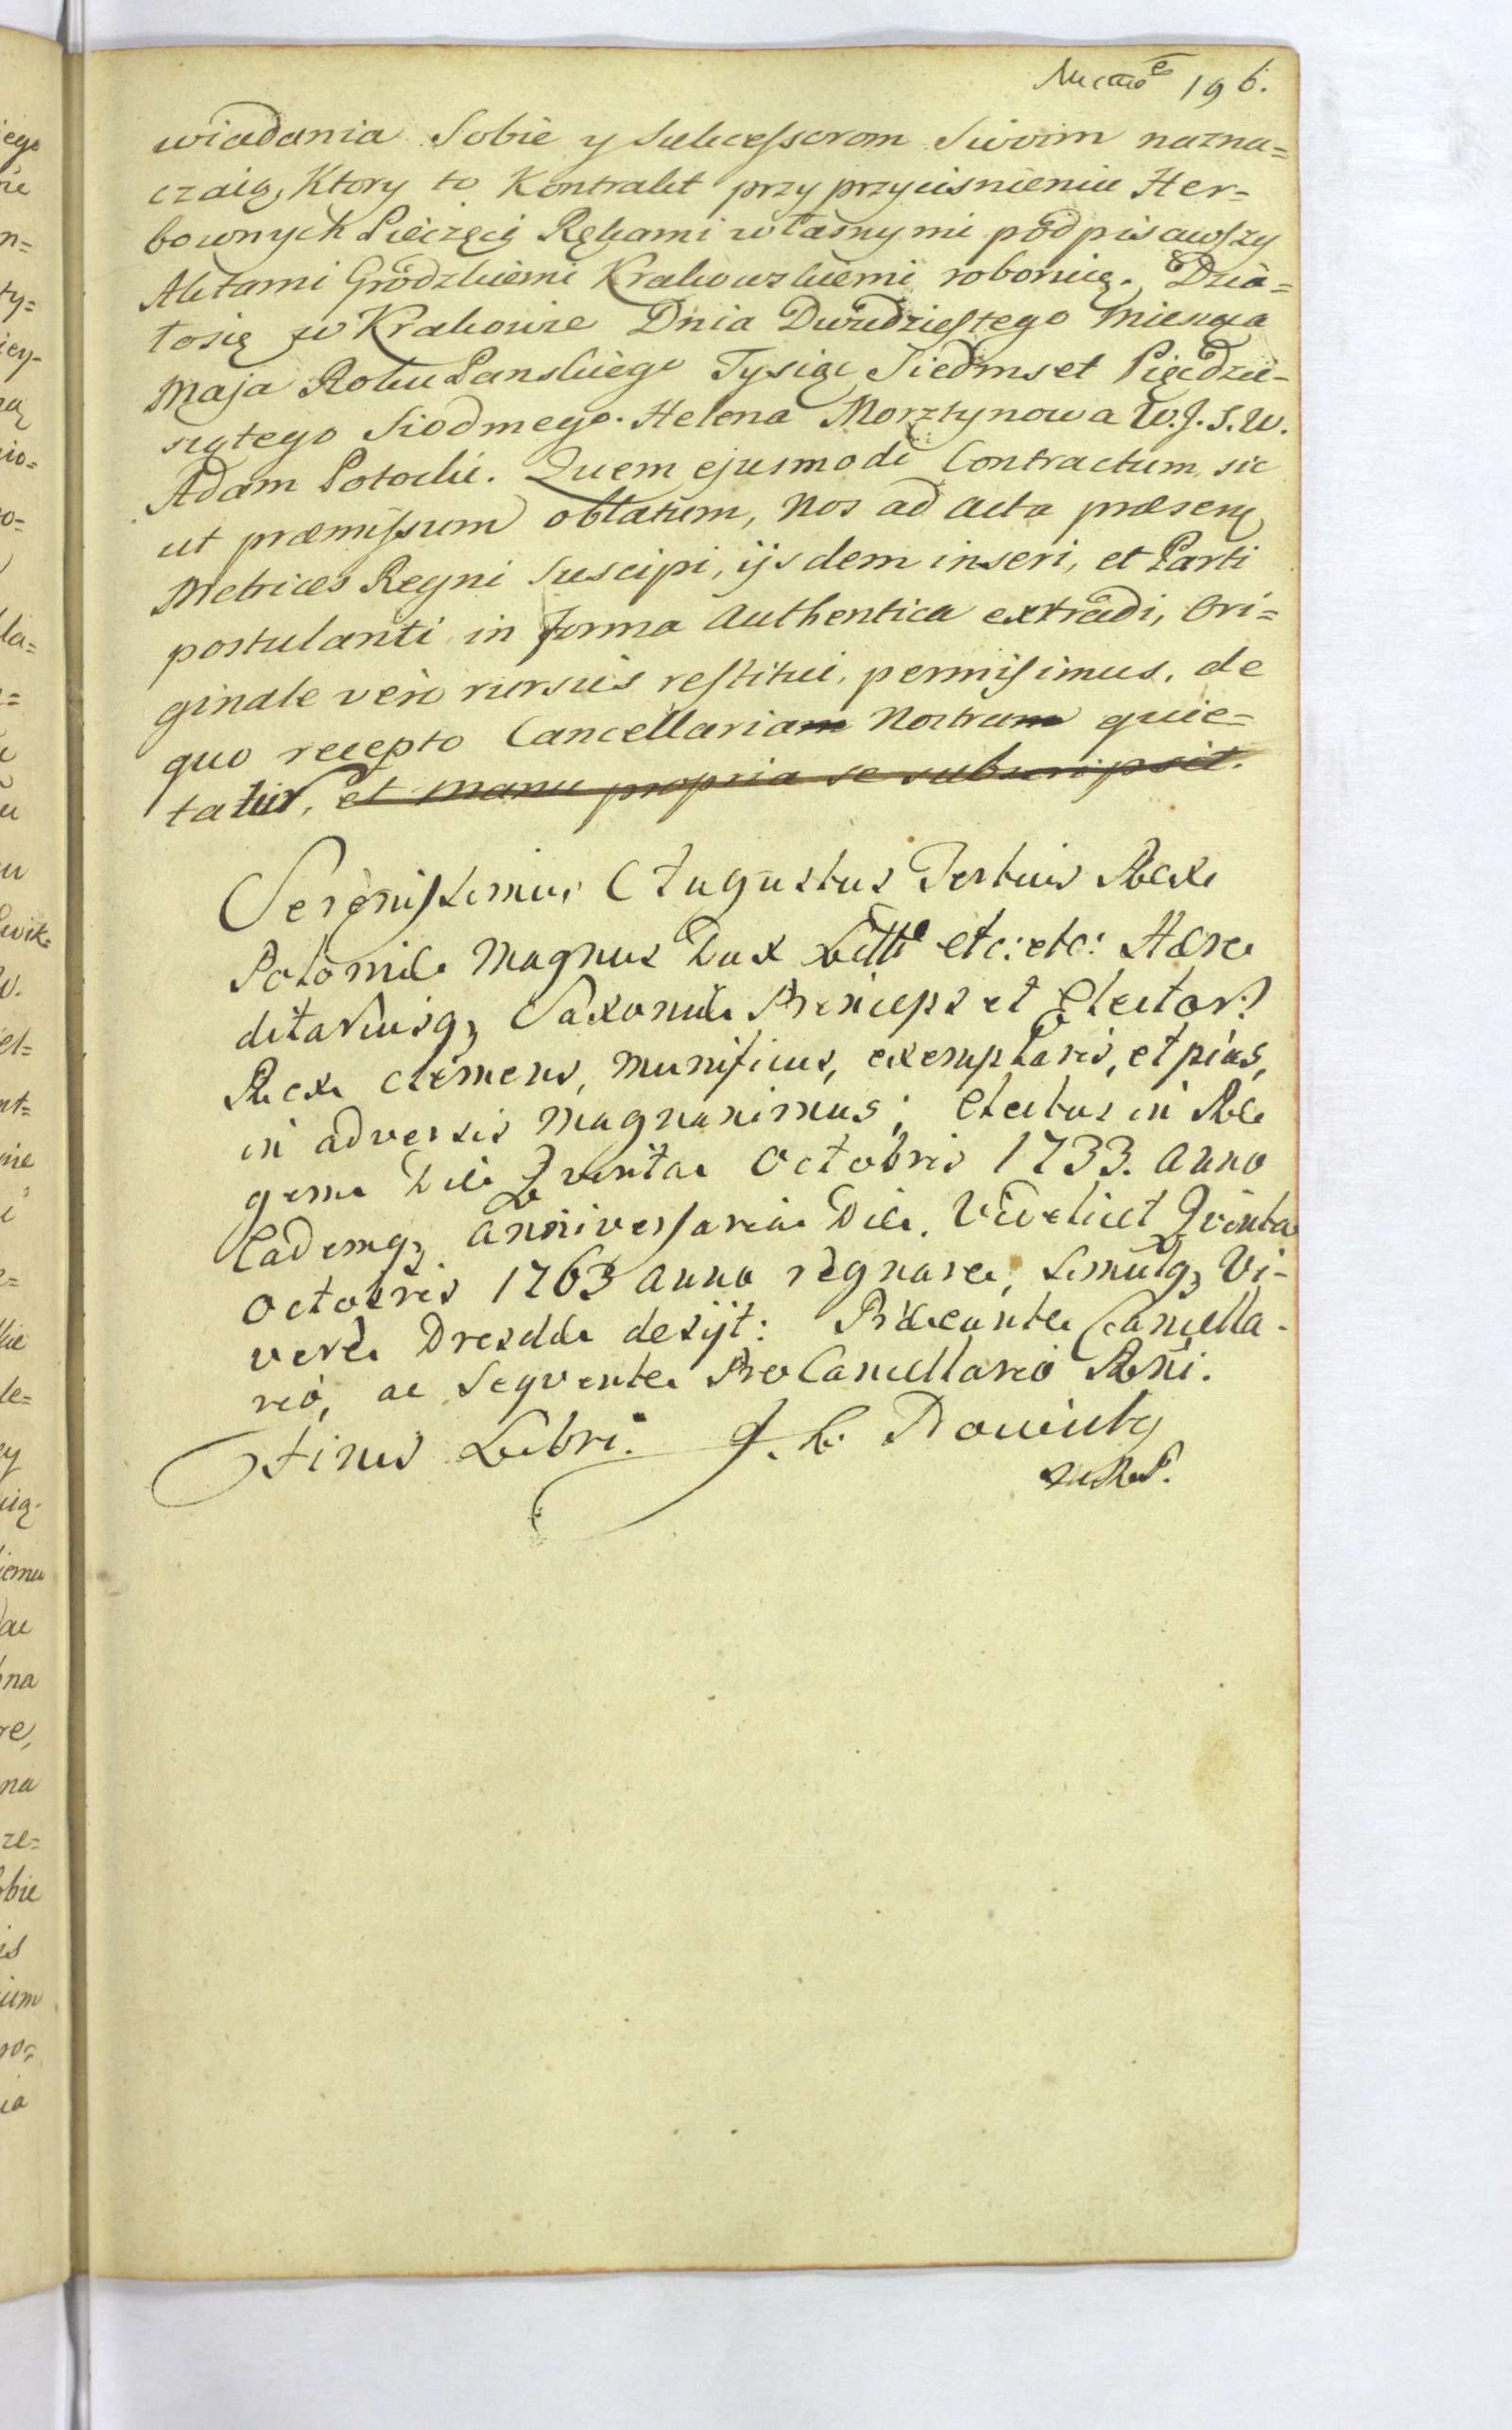 196.
wiadania Sobie y Sukcessorom Swoim nazna=
czaią, Ktory to Kontrakt przy przycisnieniu Her=
bownych Pieczęci Rękami własnymi podpisawszy
Aktami Grodzkiemi Krakowskiemi roboruią. Dzia=
łosię w Krakowie Dnia Dwudziestego Miesiąca
Maja Roku Panskiego Tysiąc Siedmset Pięcdzie=
siątego Siodmego. Helena Morztynowa W.J.S.W.
Adam Potocki. Quem ejusmodi Contractum, sic
ut præmissum oblatum, Nos ad Acta præsens
Metrices Regni suscipi, ijsdem inseri, et Parti
postulanti in forma Authentica extradi, Ori=
ginale vero rursus restitui, permisimus, de
quo recepto Cancellariam Nostram quie=
tatur, et manu propria se subscripsit.
Serenissimus Augustus Tertius Rex
Poloniæ Magnus Dux Litt. etc: etc: Hære
ditariusq; Saxoniæ Princeps et Elector.
Rex clemens, munificus, exemplaris, et pius,
in adversis Magnanimus; Electus in Re
gem Die Qvinta Octobris 1733. anno
Eademq; anniversaria Die, Videlicet Qvinta
Octobris 1763 anno regnare, simulq; Vi-
vere Dresdæ desijt: Præeunte Cancella-
rio, ac Seqvente ProCancellario Rni.
Finis Libri.